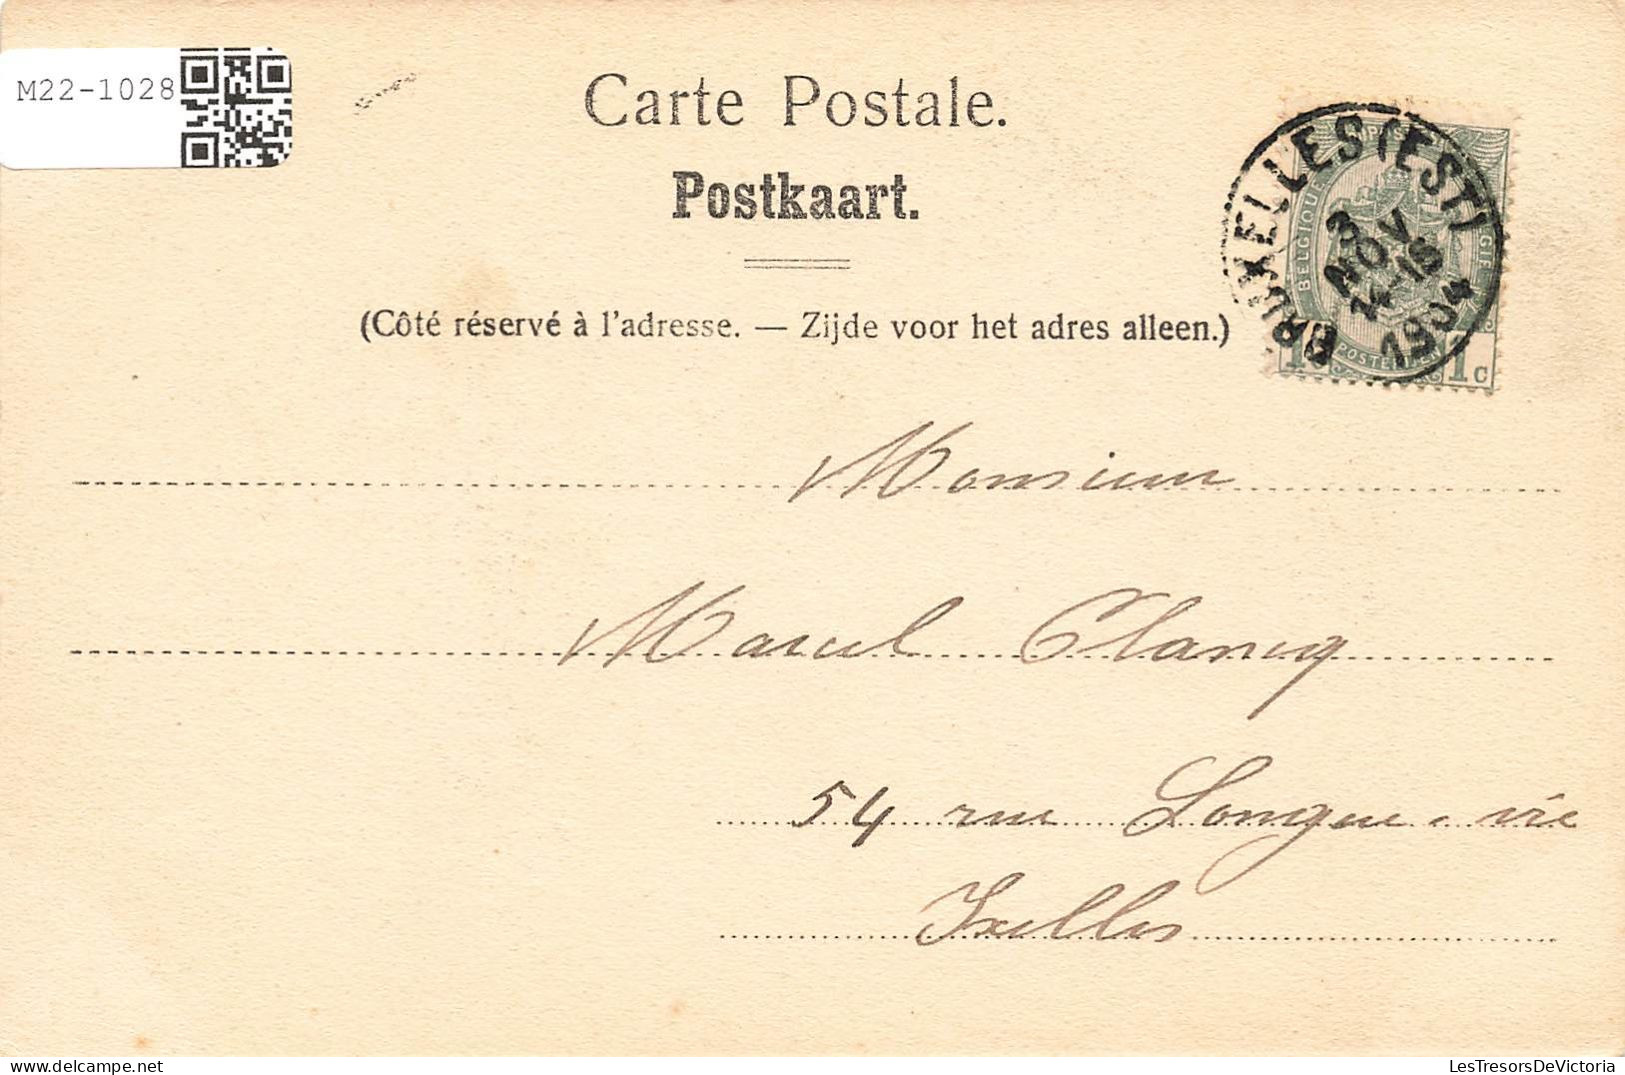 M22-1028
Carte Postale.
Postkaart.
(Côté réservé à l'adresse. — Zijde voor het adres alleen.)
BRUXELLES (EST)
3
NOV
1904
BELGIQUE
1c
Monsieur
Marcel Clancy
54 rue Longue-vie
Ixelles
LesTresorsDeVictoria